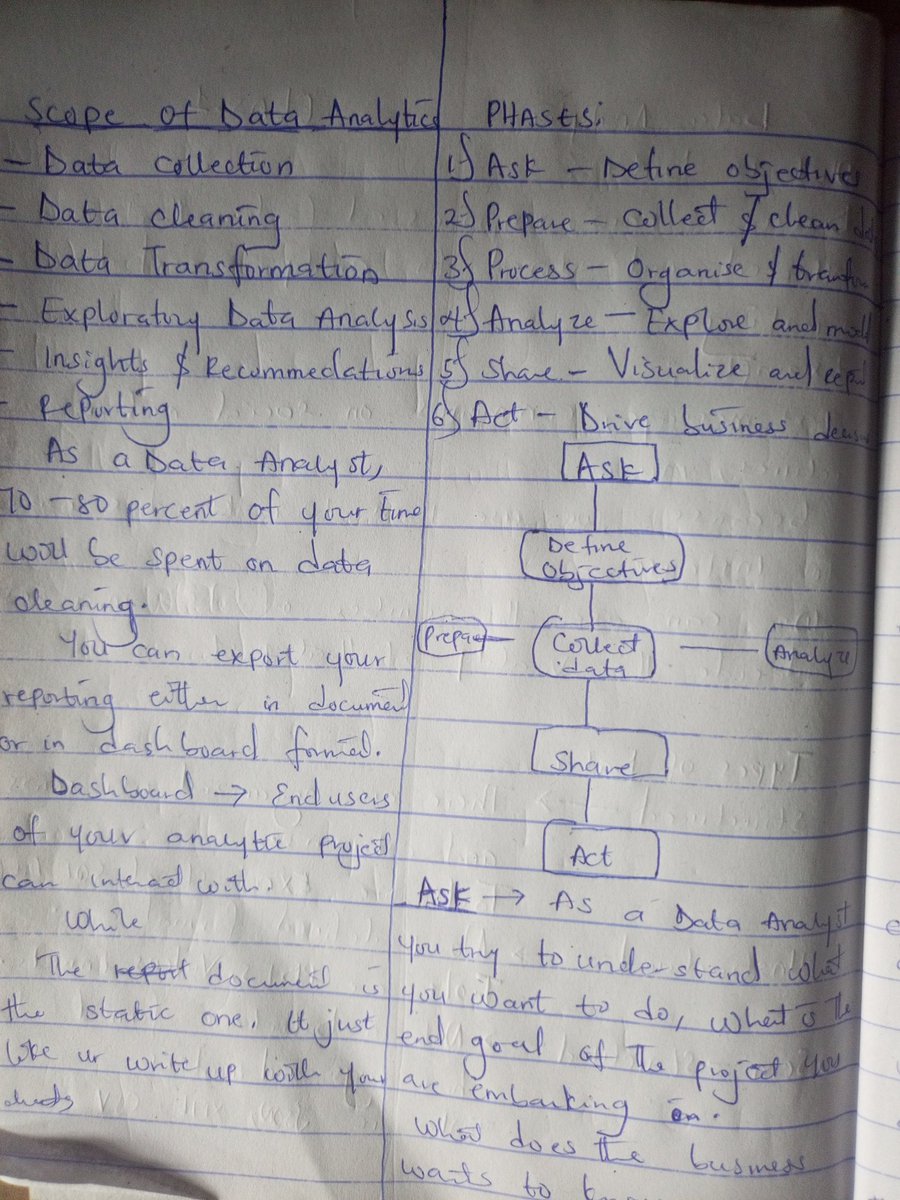 Scope of Data Analytics
- Data Collection
- Data cleaning
- Data Transformation
- Exploratory Data Analysis
- Insights & Recommedations
- Reporting
As a Data Analyst,
70 -80 percent of your time
be spent on data
cleaning.
You can export your
reporting either in document
or in dashboard formed.
Dashboard → End users
of your analytic project
can interact with.
While
The report document is
the static one. It just
like ur write up with your
PHASES:
1) Ask - Define objectives
2) Prepare - Collect & clean
3) Process - Organise &
4) Analyze - Explore and
5) Share - Visualize and
6) Act - Drive business
Ask
Define
Objectives
Prepare
Collect
data
Analyze
Share
Act
Ask → As a Data Analyst
you try to understand what
you want to do, what is the
end goal of the project you
are embarking on.
What does the business
wants to